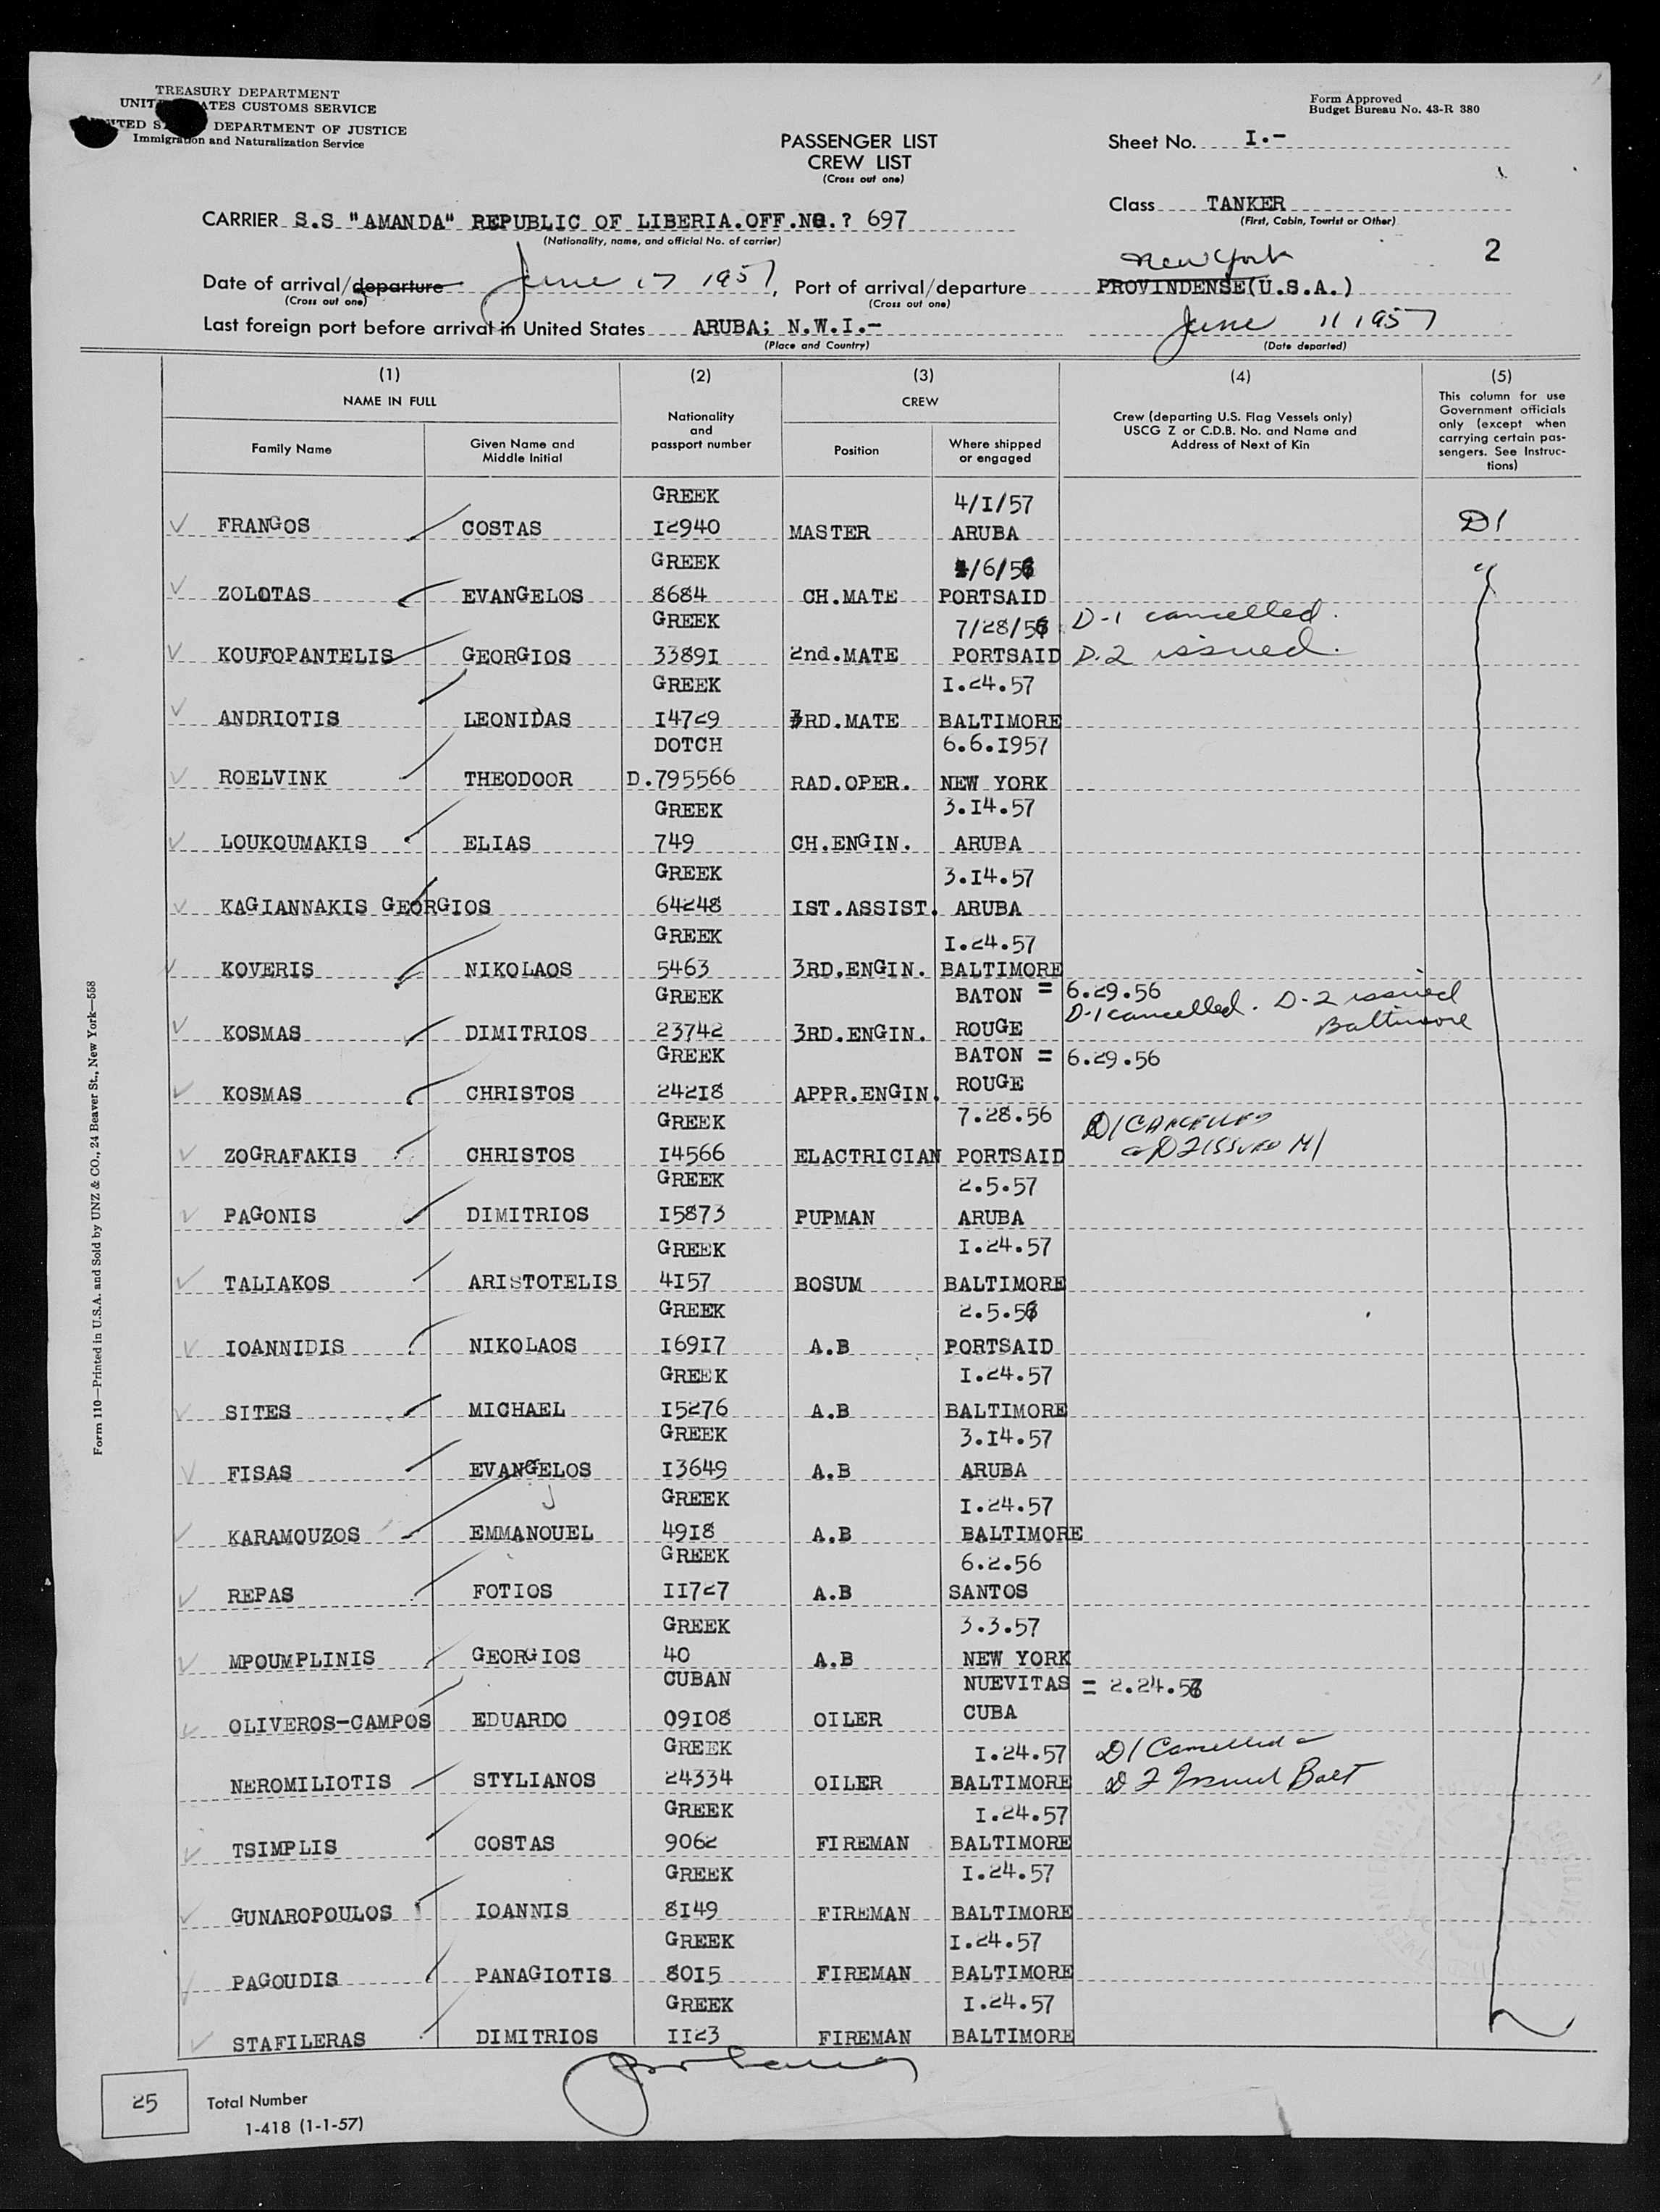 TREASURY DEPARTMENT
UNIT ATES CUSTOMS SERVICE
ITED S DEPARTMENT OF JUSTICE
Immigration and Naturalization Service
Form Approved
Budget Bureau No. 43-R 380
PASSENGER LIST
CREW LIST
(Cross out one)
Sheet No. I.-
Class TANKER
(First, Cabin, Tourist or Other)
CARRIER S.S "AMANDA" REPUBLIC OF LIBERIA.OFF.NO.? 697
(Nationality, name, and official No. of carrier)
2
New York
Date of arrival/departure June 17 1957, Port of arrival/departure PROVINDENSE(U.S.A.)
(Cross out one) (Cross out one)
Last foreign port before arrival in United States ARUBA; N.W.I.- June 11 1957
(Place and Country) (Date departed)
(1) (2) (3) (4) (5)
NAME IN FULL
Nationality and passport number
CREW
Crew (departing U.S. Flag Vessels only)
USCG Z or C.D.B. No. and Name and
Address of Next of Kin
This column for use
Government officials
only (except when
carrying certain pas-
sengers. See Instruc-
tions)
Family Name
Given Name and
Middle Initial
Position
Where shipped
or engaged
GREEK 4/I/57
FRANGOS COSTAS I2940 MASTER ARUBA D1
GREEK 4/6/56
ZOLOTAS EVANGELOS 8684 CH.MATE PORTSAID
GREEK 7/28/56 D-1 cancelled.
KOUFOPANTELIS GEORGIOS 3389I 2nd.MATE PORTSAID D.2 issued.
GREEK I.24.57
ANDRIOTIS LEONIDAS I4729 3RD.MATE BALTIMORE
DOTCH 6.6.I957
ROELVINK THEODOOR D.795566 RAD.OPER. NEW YORK
GREEK 3.I4.57
LOUKOUMAKIS ELIAS 749 CH.ENGIN. ARUBA
GREEK 3.I4.57
KAGIANNAKIS GEORGIOS 64248 IST.ASSIST. ARUBA
GREEK I.24.57
KOVERIS NIKOLAOS 5463 3RD.ENGIN. BALTIMORE
GREEK BATON = 6.29.56
D-1 cancelled. D-2 issued
Baltimore
KOSMAS DIMITRIOS 23742 3RD.ENGIN. ROUGE
GREEK BATON = 6.29.56
KOSMAS CHRISTOS 242I8 APPR.ENGIN. ROUGE
GREEK 7.28.56 D1 CANCELLED
ZOGRAFAKIS CHRISTOS I4566 ELACTRICIAN PORTSAID D2 ISSUED
GREEK 2.5.57
PAGONIS DIMITRIOS I5873 PUPMAN ARUBA
GREEK I.24.57
TALIAKOS ARISTOTELIS 4I57 BOSUM BALTIMORE
GREEK 2.5.56
IOANNIDIS NIKOLAOS I69I7 A.B PORTSAID
GREEK I.24.57
SITES MICHAEL I5276 A.B BALTIMORE
GREEK 3.I4.57
FISAS EVANGELOS I3649 A.B ARUBA
GREEK I.24.57
KARAMOUZOS EMMANOUEL 49I8 A.B BALTIMORE
GREEK 6.2.56
REPAS FOTIOS II727 A.B SANTOS
GREEK 3.3.57
MPOUMPLINIS GEORGIOS 40 A.B NEW YORK
CUBAN NUEVITAS = 2.24.56
OLIVEROS-CAMPOS EDUARDO 09I08 OILER CUBA
GREEK I.24.57 D1 Cancelled
NEROMILIOTIS STYLIANOS 24334 OILER BALTIMORE D2 Issued Balt
GREEK I.24.57
TSIMPLIS COSTAS 9062 FIREMAN BALTIMORE
GREEK I.24.57
GUNAROPOULOS IOANNIS 8I49 FIREMAN BALTIMORE
GREEK I.24.57
PAGOUDIS PANAGIOTIS 80I5 FIREMAN BALTIMORE
GREEK I.24.57
STAFILERAS DIMITRIOS II23 FIREMAN BALTIMORE
25 Total Number
1-418 (1-1-57)
Form 110—Printed in U.S.A. and Sold by UNZ & CO., 24 Beaver St., New York—558